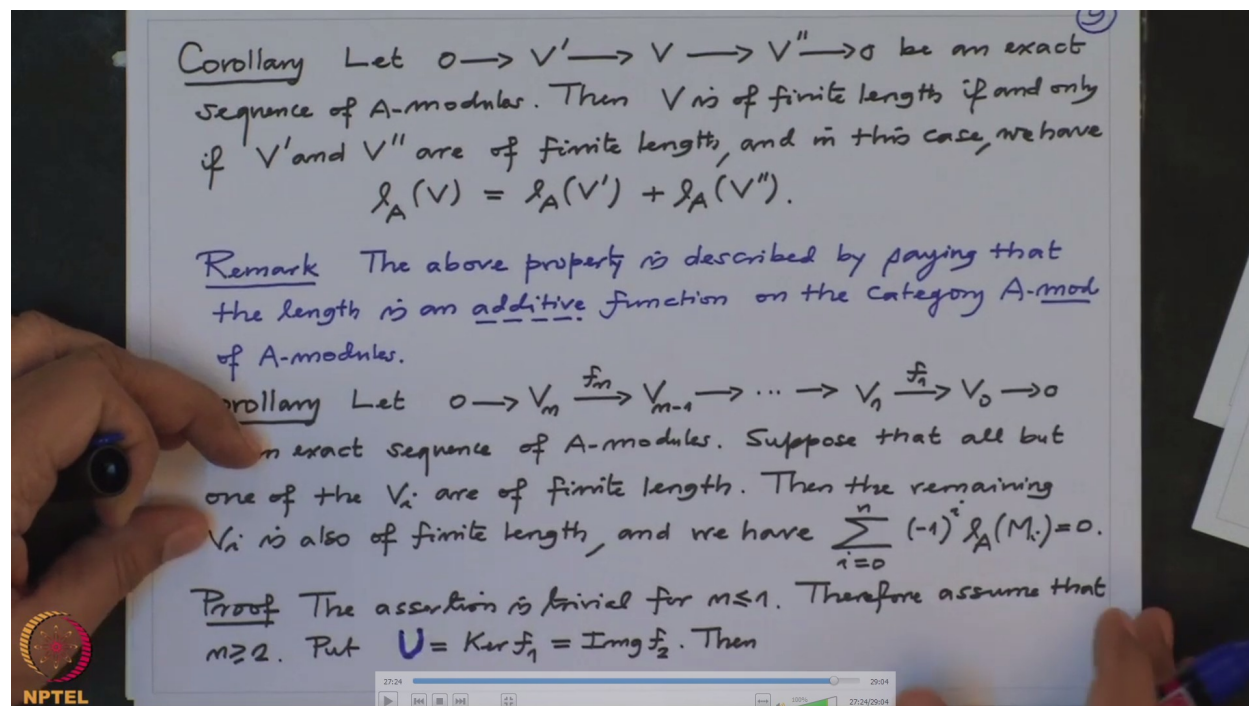 9
Corollary Let 0 → V' → V → V'' → 0 be an exact
sequence of A-modules. Then V is of finite length if and only
if V' and V'' are of finite length, and in this case, we have
ℓ_A(V) = ℓ_A(V') + ℓ_A(V'').
Remark The above property is described by paying that
the length is an additive function on the category A-mod
of A-modules.
orollary Let 0 → V_n —f_n→ V_{n-1} → ... → V_1 —f_1→ V_0 → 0
n exact sequence of A-modules. Suppose that all but
one of the V_i are of finite length. Then the remaining
V_i is also of finite length, and we have ∑_{i=0}^{n} (-1)^i ℓ_A(M_i) = 0.
Proof The assertion is trivial for n ≤ 1. Therefore assume that
n ≥ 2. Put U = Ker f_1 = Img f_2. Then
NPTEL
27:24 29:04
100% 27:24/29:04